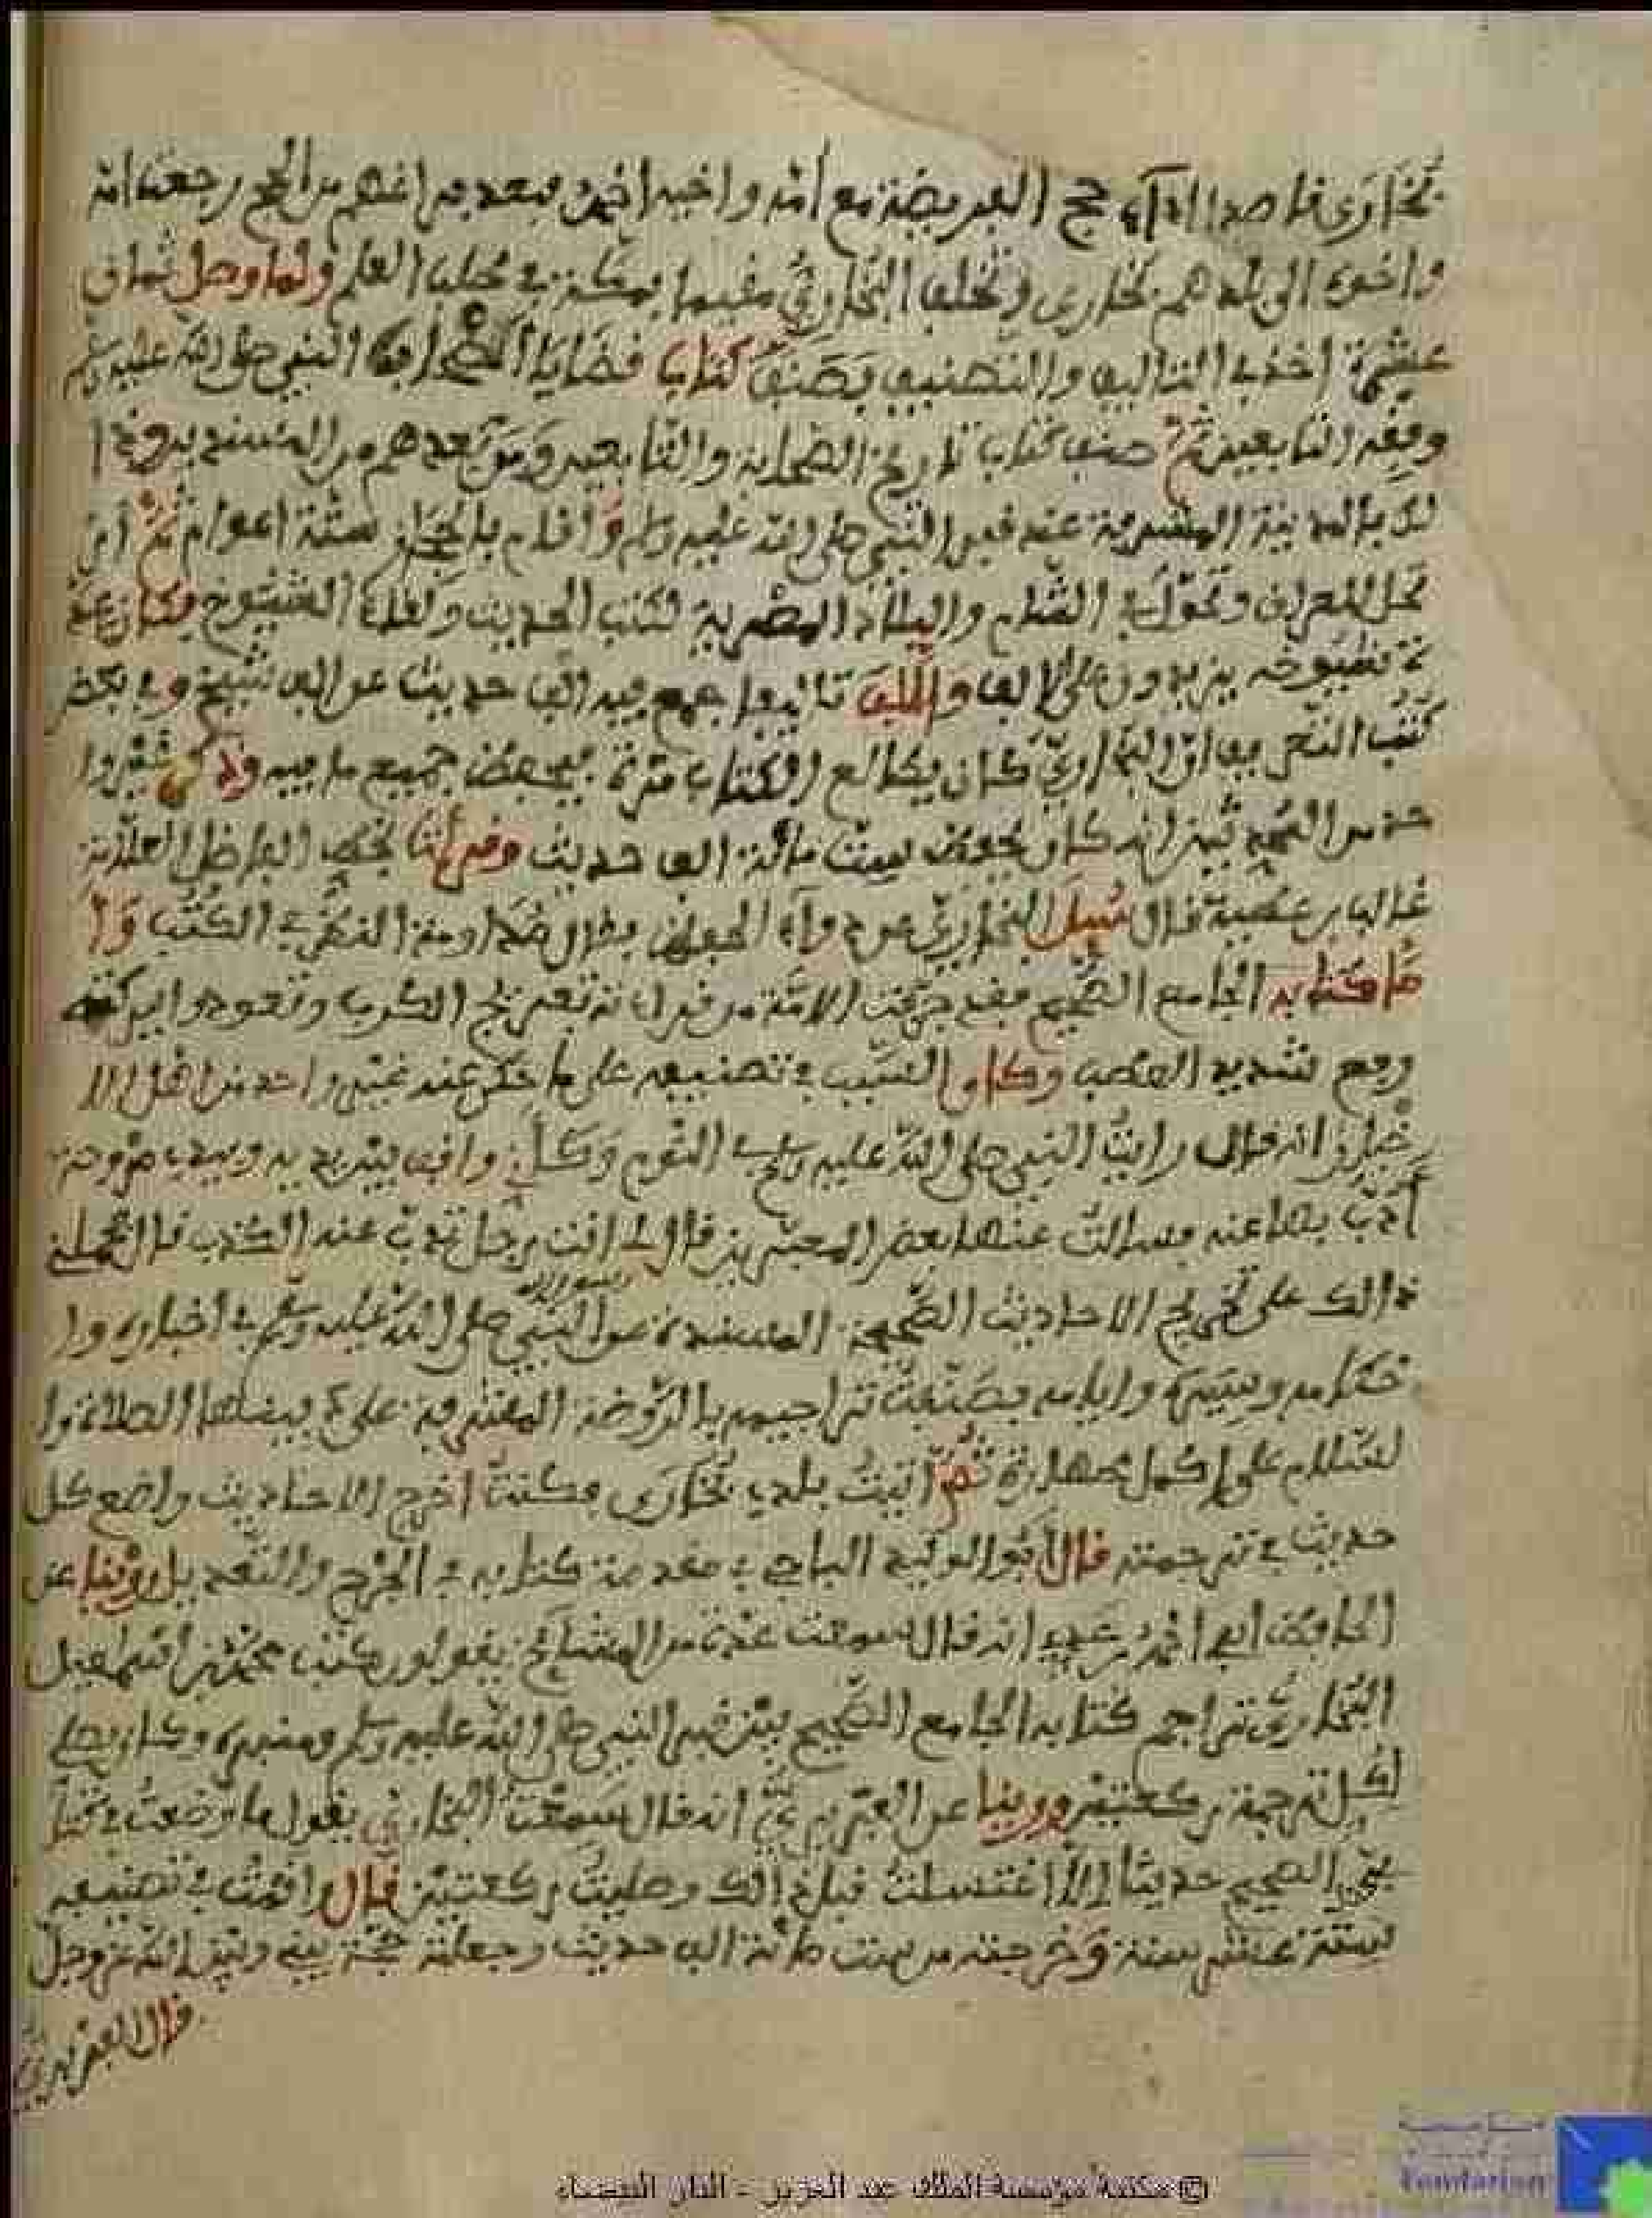 بخارى قاصدا اداء حج الفريضة مع امه واخيه احمد فبعد فراغهم من الحج رجعت امه
واخوه الى بلدهم بخارى وتخلف البخاري مقيما بمكة في طلب العلم ولما وصل ثمان
عشرة اخذ في التاليف والتصنيف فصنف كتاب قضايا اصحاب النبي صلى الله عليه وسلم
وفقه التابعين ثم صنف كتاب تاريخ الصحابة والتابعين ومن بعدهم من المسندين
بالمدينة المشرفة عند قبر النبي صلى الله عليه وسلم واقام بالحجاز ستة اعوام ثم
للعراق وتحول في الشام والبلاد المصرية لكتب الحديث ولقاء الشيوخ فكان
شيوخه يزيدون على الالف والف تاليفا جمع فيه الف حديث عن الف شيخ وفي بعض
كتب ان البخاري كان يطالع الكتاب مرة فيحفظ جميع ما فيه
انه كان يحفظ ست مائة الف حديث وقرات بخط الفاضل العلامة
غالب بن عطية قال سئل البخاري عن دواء الحفظ فقال مداومة النظر في الكتب وا
ما كتابه الجامع الصحيح فقد جربت الامة من قراءته تفريج الكرب وتعود وا بركته
رفع شديد الخطب وكان السبب في تصنيفه على ما حكى عنه غير واحد من اهل الا
خبار انه قال رايت النبي صلى الله عليه وسلم في النوم وكاني واقف بين يديه وبيدي مروحة
اذب بها عنه فسالت عنها بعض المعبرين فقال لي انت رجل تذب عنه الكذب قال فحملني
ذالك على تخريج الاحاديث الصحيحة المسندة عن رسول الله النبي صلى الله عليه وسلم في اخباره وا
حكامه وسيره وايامه فصنفت تراجمه بالروضة المشرفة على ميت فيها الصلاة وا
لسلام على اكمل طهارة ثم اتيت بلدي بخارى فكنت اخرج الاحاديث واضع كل
حديث في ترجمته قال ابو الوليد الباجي في مقدمة كتابه في الجرح والتعديل روينا عن
الحافظ ابي احمد بن عدي انه قال سمعت عدة من المشايخ يقولون كتب محمد بن اسمعيل
البخاري تراجم كتابه الجامع الصحيح بين قبر النبي صلى الله عليه وسلم ومنبره وكان يصلي
لكل ترجمة ركعتين وروينا عن الفربري انه قال سمعت البخاري يقول ما وضعت في كتا
بي الصحيح حديثا الا اغتسلت قبل ذالك وصليت ركعتين قال واقمت في تصنيفه
ستة عشر سنة وخرجته من ست مائة الف حديث وجعلته حجة بيني وبين الله عز وجل
قال الفربري
© مكتبة مؤسسة الملك عبد العزيز - الدار البيضاء
مؤسسة
Fondation